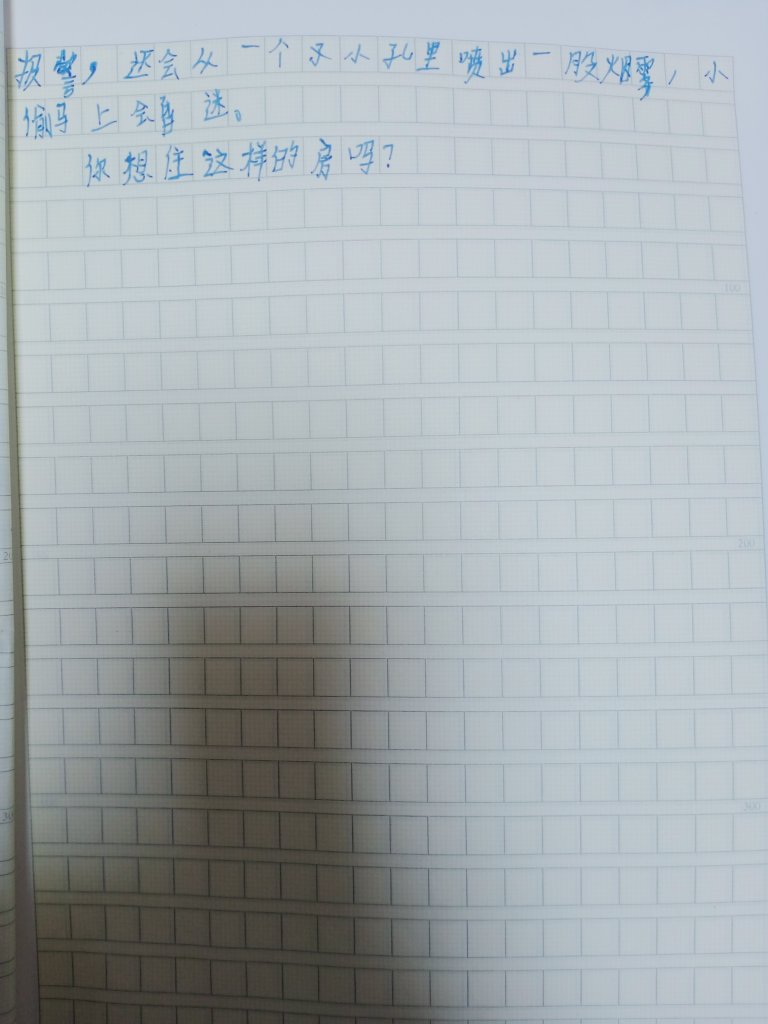 报警，还会从一个又小孔里喷出一股烟雾，小
偷马上会昏迷。
你想住这样的房吗？
100
200
300